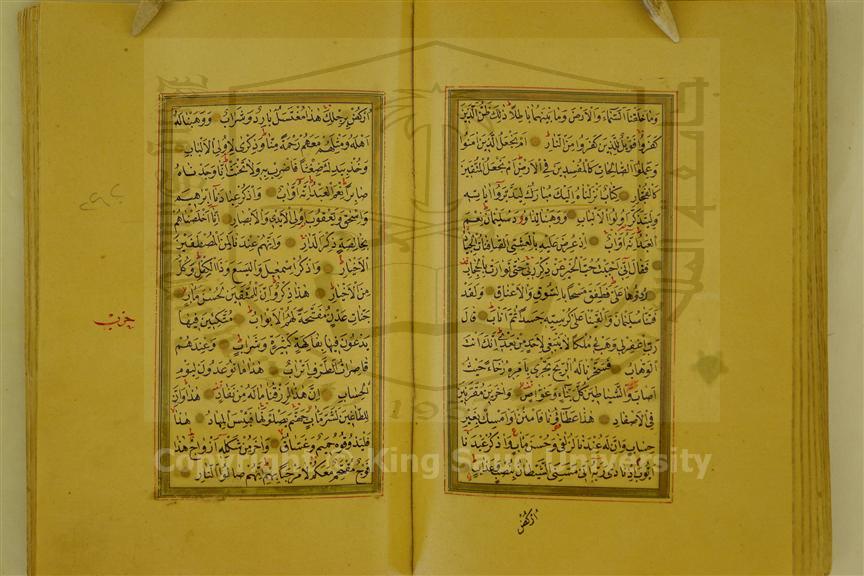 وما خلقنا السماء والارض وما بينهما باطلا ذلك ظن الذين
كفروا فويل للذين كفروا من النار ام نجعل الذين امنوا
وعملوا الصالحات كالمفسدين في الارض ام نجعل المتقين
كالفجار كتاب انزلناه اليك مبارك ليدبروا اياته
وليتذكر اولوا الالباب ووهبنا لداود سليمان نعم
العبد انه اواب اذ عرض عليه بالعشي الصافنات الجياد
فقال اني احببت حب الخير عن ذكر ربي حتى توارت بالحجاب
ردوها علي فطفق مسحا بالسوق والاعناق ولقد
فتنا سليمان والقينا على كرسيه جسدا ثم اناب قال
رب اغفر لي وهب لي ملكا لا ينبغي لاحد من بعدي انك انت
الوهاب فسخرنا له الريح تجري بامره رخاء حيث
اصاب والشياطين كل بناء وغواص واخرين مقرنين
في الاصفاد هذا عطاؤنا فامنن او امسك بغير
حساب وان له عندنا لزلفى وحسن ماب واذكر عبدنا
ايوب اذ نادى ربه اني مسني الشيطان بنصب وعذاب
اركض
اركض برجلك هذا مغتسل بارد وشراب ووهبنا له
اهله ومثلهم معهم رحمة منا وذكرى لاولي الالباب
وخذ بيدك ضغثا فاضرب به ولا تحنث انا وجدناه
صابرا نعم العبد انه اواب واذكر عبادنا ابرهيم
واسحق ويعقوب اولي الايدي والابصار انا اخلصناهم
بخالصة ذكرى الدار وانهم عندنا لمن المصطفين
الاخيار واذكر اسمعيل واليسع وذا الكفل وكل
من الاخيار هذا ذكر وان للمتقين لحسن ماب
جنات عدن مفتحة لهم الابواب متكئين فيها
يدعون فيها بفاكهة كثيرة وشراب وعندهم
قاصرات الطرف اتراب هذا ما توعدون ليوم
الحساب ان هذا لرزقنا ما له من نفاد هذا وان
للطاغين لشر ماب جهنم يصلونها فبئس المهاد هذا
فليذوقوه حميم وغساق واخر من شكله ازواج هذا
فوج مقتحم معكم لا مرحبا بهم انهم صالوا النار
حزب
Copyright © King Saud University
1957